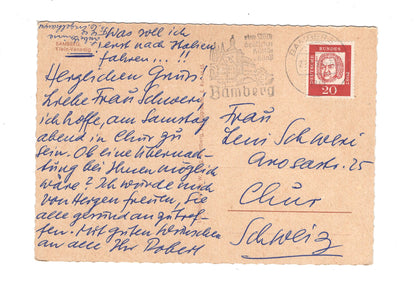 Was soll ich
erst nach Italien
fahren ...!!
BAMBERG
Klein-Venedig
Herzlichen Gruss!
Liebe Frau Schweri,
ich hoffe, am Samstag
abend in Chur zu
sein. Ob eine Übernach-
tung bei Ihnen möglich
wäre? Ich würde mich
von Herzen freuen, Sie
alle gesund anzutref-
fen. Mit guten Wünschen
an alle Ihr Robert
BAMBERG
Bamberg
DEUTSCHE BUNDESPOST
20
Frau
Leni Schweri
Arosastr. 25
Chur
Schweiz